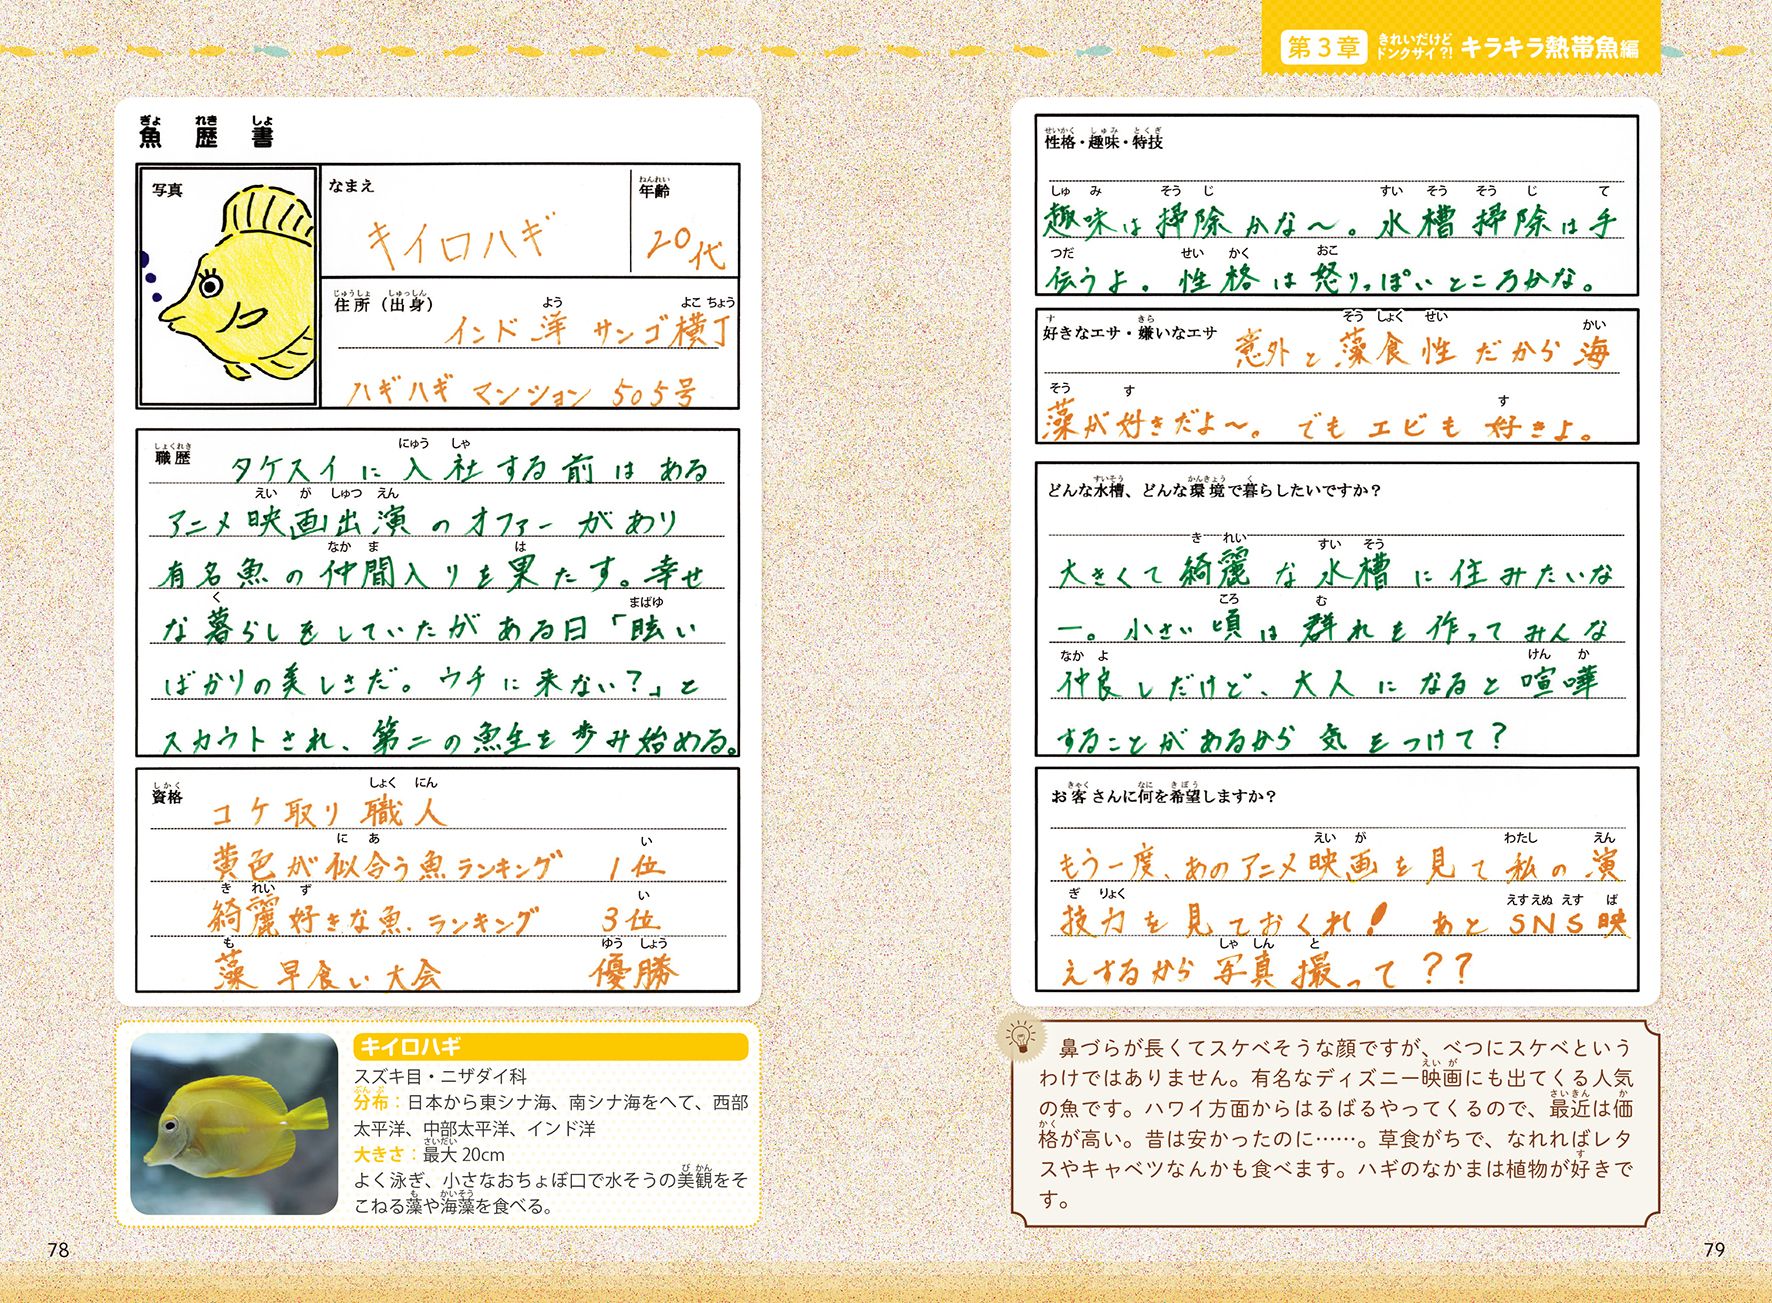 第3章 きれいだけど ドンクサイ?! キラキラ熱帯魚編
魚歴書
写真
なまえ
キイロハギ
年齢
20代
住所(出身)
インド洋 サンゴ横丁
ハギハギマンション 505号
職歴
タケスイに入社する前はある
アニメ映画出演のオファーがあり
有名魚の仲間入りを果たす。幸せ
な暮らしをしていたがある日「眩い
ばかりの美しさだ。ウチに来ない?」と
スカウトされ、第二の魚生を歩み始める。
資格
コケ取り職人
黄色が似合う魚ランキング 1位
綺麗好きな魚ランキング 3位
藻早食い大会 優勝
キイロハギ
スズキ目・ニザダイ科
分布:日本から東シナ海、南シナ海をへて、西部
太平洋、中部太平洋、インド洋
大きさ:最大20cm
よく泳ぎ、小さなおちょぼ口で水そうの美観をそ
こねる藻や海藻を食べる。
78
性格・趣味・特技
趣味は掃除かな〜。水槽掃除は手
伝うよ。性格は怒りっぽいところかな。
好きなエサ・嫌いなエサ
意外と藻食性だから海
藻が好きだよ〜。でもエビも好きよ。
どんな水槽、どんな環境で暮らしたいですか?
大きくて綺麗な水槽に住みたいな
ー。小さい頃は群れを作ってみんな
仲良しだけど、大人になると喧嘩
することがあるから気をつけて?
お客さんに何を希望しますか?
もう一度、あのアニメ映画を見て私の演
技力を見ておくれ! あとSNS映
えするから写真撮って??
鼻づらが長くてスケベそうな顔ですが、べつにスケベという
わけではありません。有名なディズニー映画にも出てくる人気
の魚です。ハワイ方面からはるばるやってくるので、最近は価
格が高い。昔は安かったのに……。草食がちで、なれればレタ
スやキャベツなんかも食べます。ハギのなかまは植物が好きで
す。
79